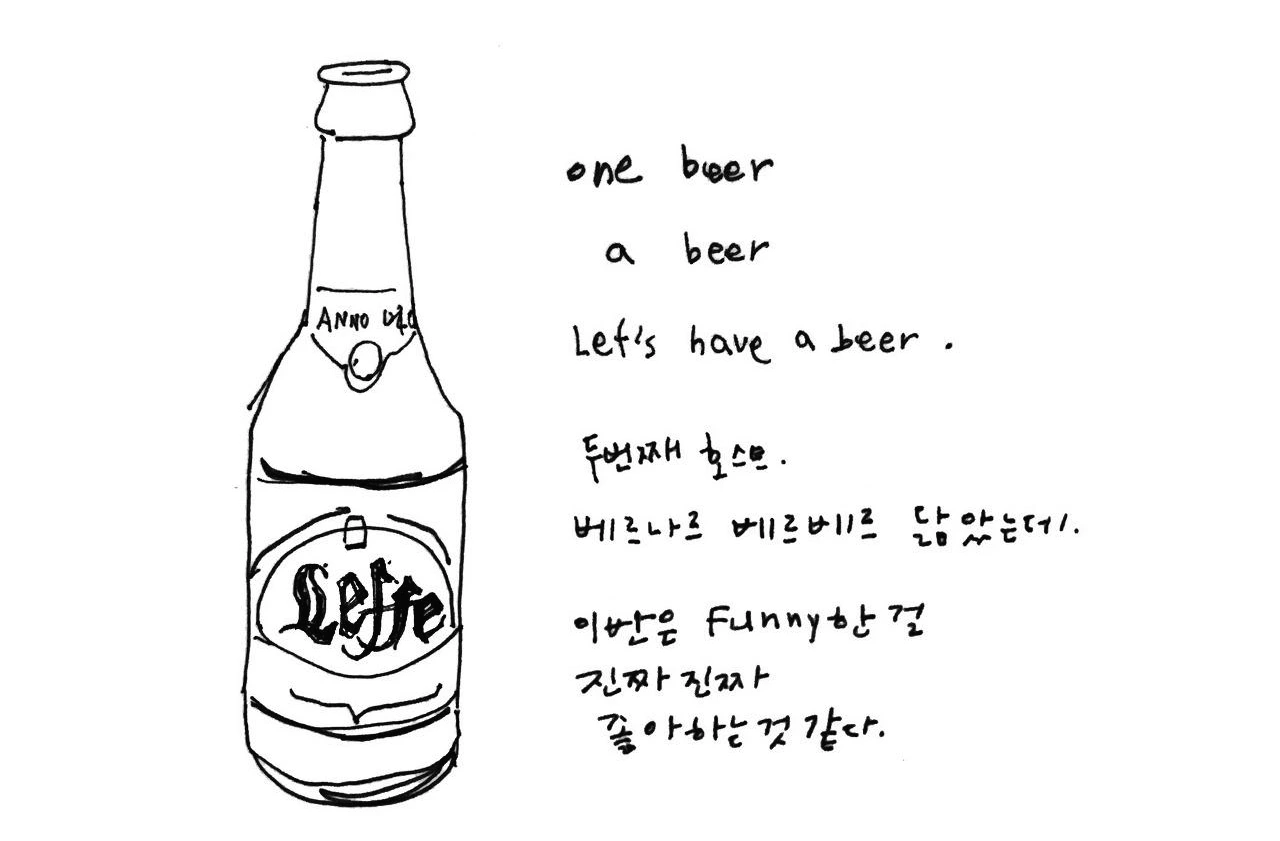 ANNO
Leffe
one beer
a beer
Let's have a beer.
두번째 호스트.
베르나르 베르베르 닮았는데.
이반은 Funny한 걸
진짜 진짜
좋아하는것 같다.